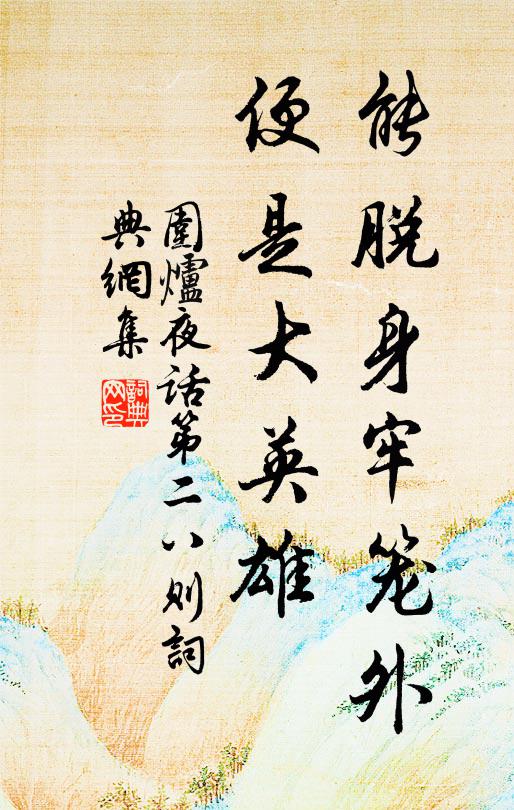 能脱身牢笼外
便是大英雄
圍爐夜话第二八则詞
典網集
詞典
网印